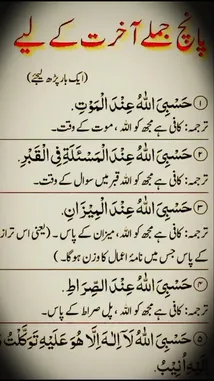 پانچ جملے آخرت کے لیے
(ایک بار پڑھ لیجئے)
① حَسْبِیَ اللهُ عِنْدَ الْمَوْتِ.
ترجمہ: کافی ہے مجھ کو اللہ ، موت کے وقت۔
② حَسْبِیَ اللهُ عِنْدَ الْمَسْئَلَةِ فِی الْقَبْرِ.
ترجمہ: کافی ہے مجھ کو اللہ قبر میں سوال کے وقت۔
③ حَسْبِیَ اللهُ عِنْدَ الْمِیْزَانِ.
ترجمہ: کافی ہے مجھ کو اللہ، میزان کے پاس۔ (یعنی اس ترازو
کے پاس جس میں نامۂ اعمال کا وزن ہوگا۔)
④ حَسْبِیَ اللهُ عِنْدَ الصِّرَاطِ.
ترجمہ: کافی ہے مجھ کو اللہ، پل صراط کے پاس۔
⑤ حَسْبِیَ اللهُ لَآ اِلٰهَ اِلَّا هُوَ عَلَیْهِ تَوَکَّلْتُ وَ
اِلَیْهِ اُنِیْبُ.